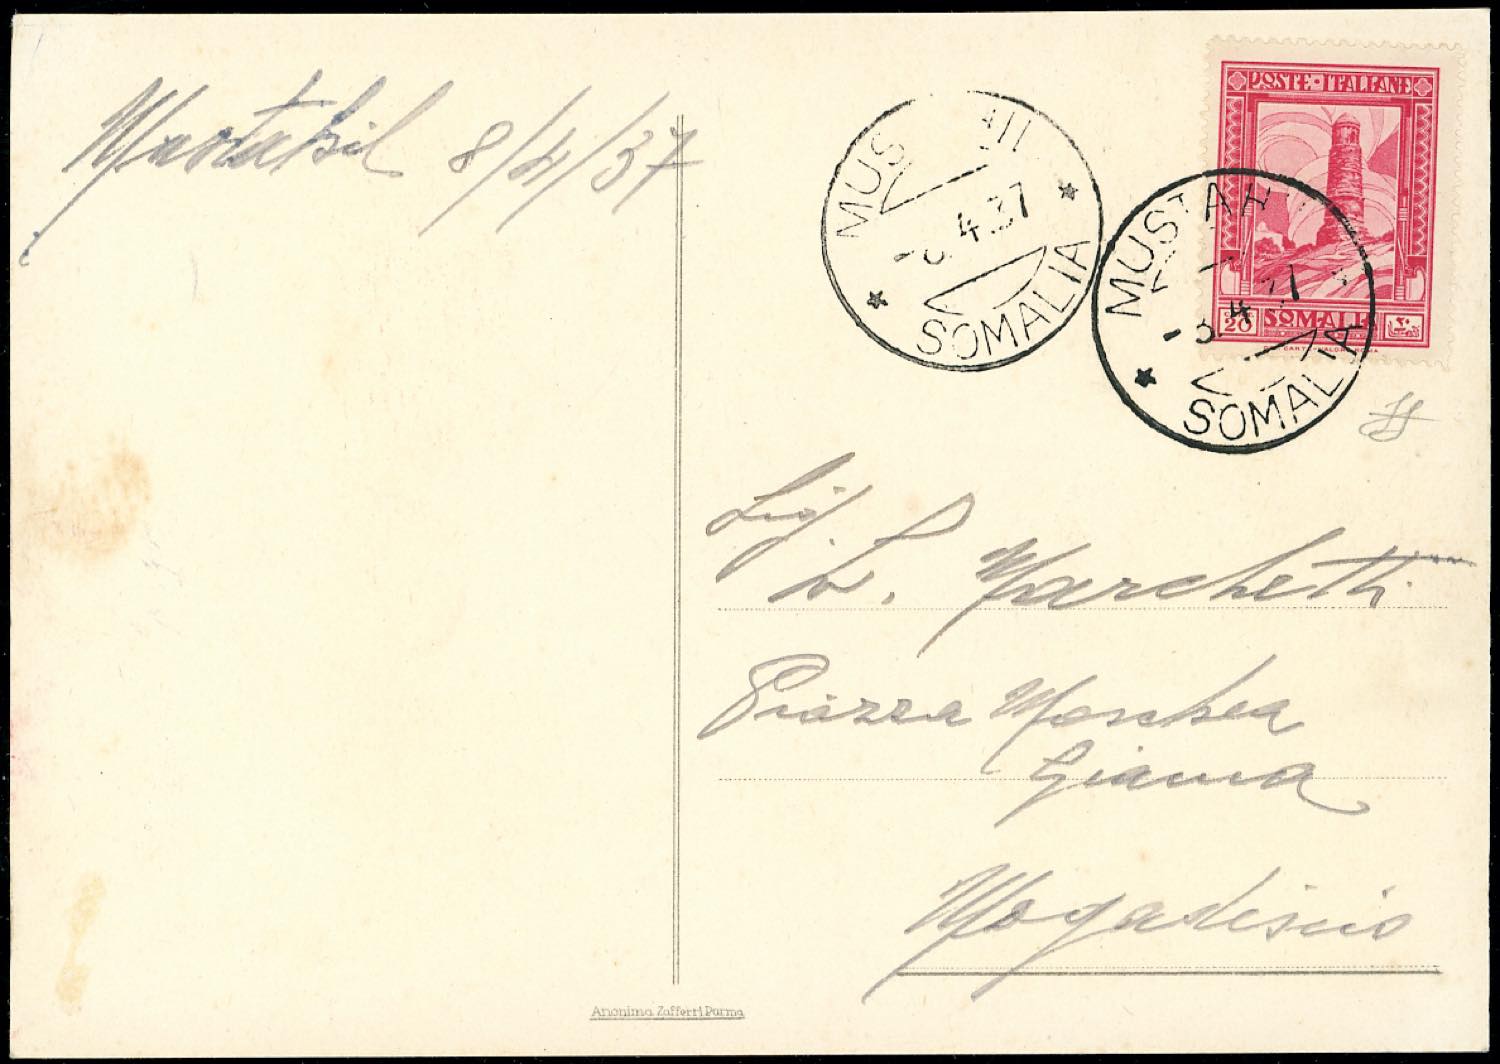 Mustahil 8/4/37
MUS AHI
8.4.37
SOMALIA
POSTE·ITALIANE
20 SOMALIA ٢٠
MUSTAH
8.4.37
SOMALIA
Sig.
L. Marchetti
Piazza Moschea
Giama
Mogadiscio
Anonima Zafferri Parma